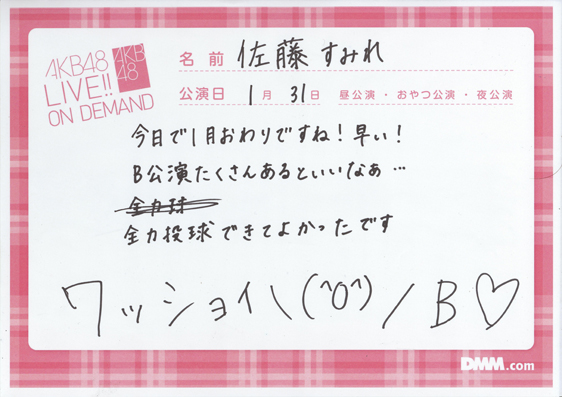 AKB48
LIVE!!
ON DEMAND
AKB
48
名前 佐藤すみれ
公演日 1月 31日 昼公演・おやつ公演・夜公演
今日で1月おわりですね!早い!
B公演たくさんあるといいなぁ…
全力球
全力投球できてよかったです
ワッショイ\(^0^)/B♡
DMM.com